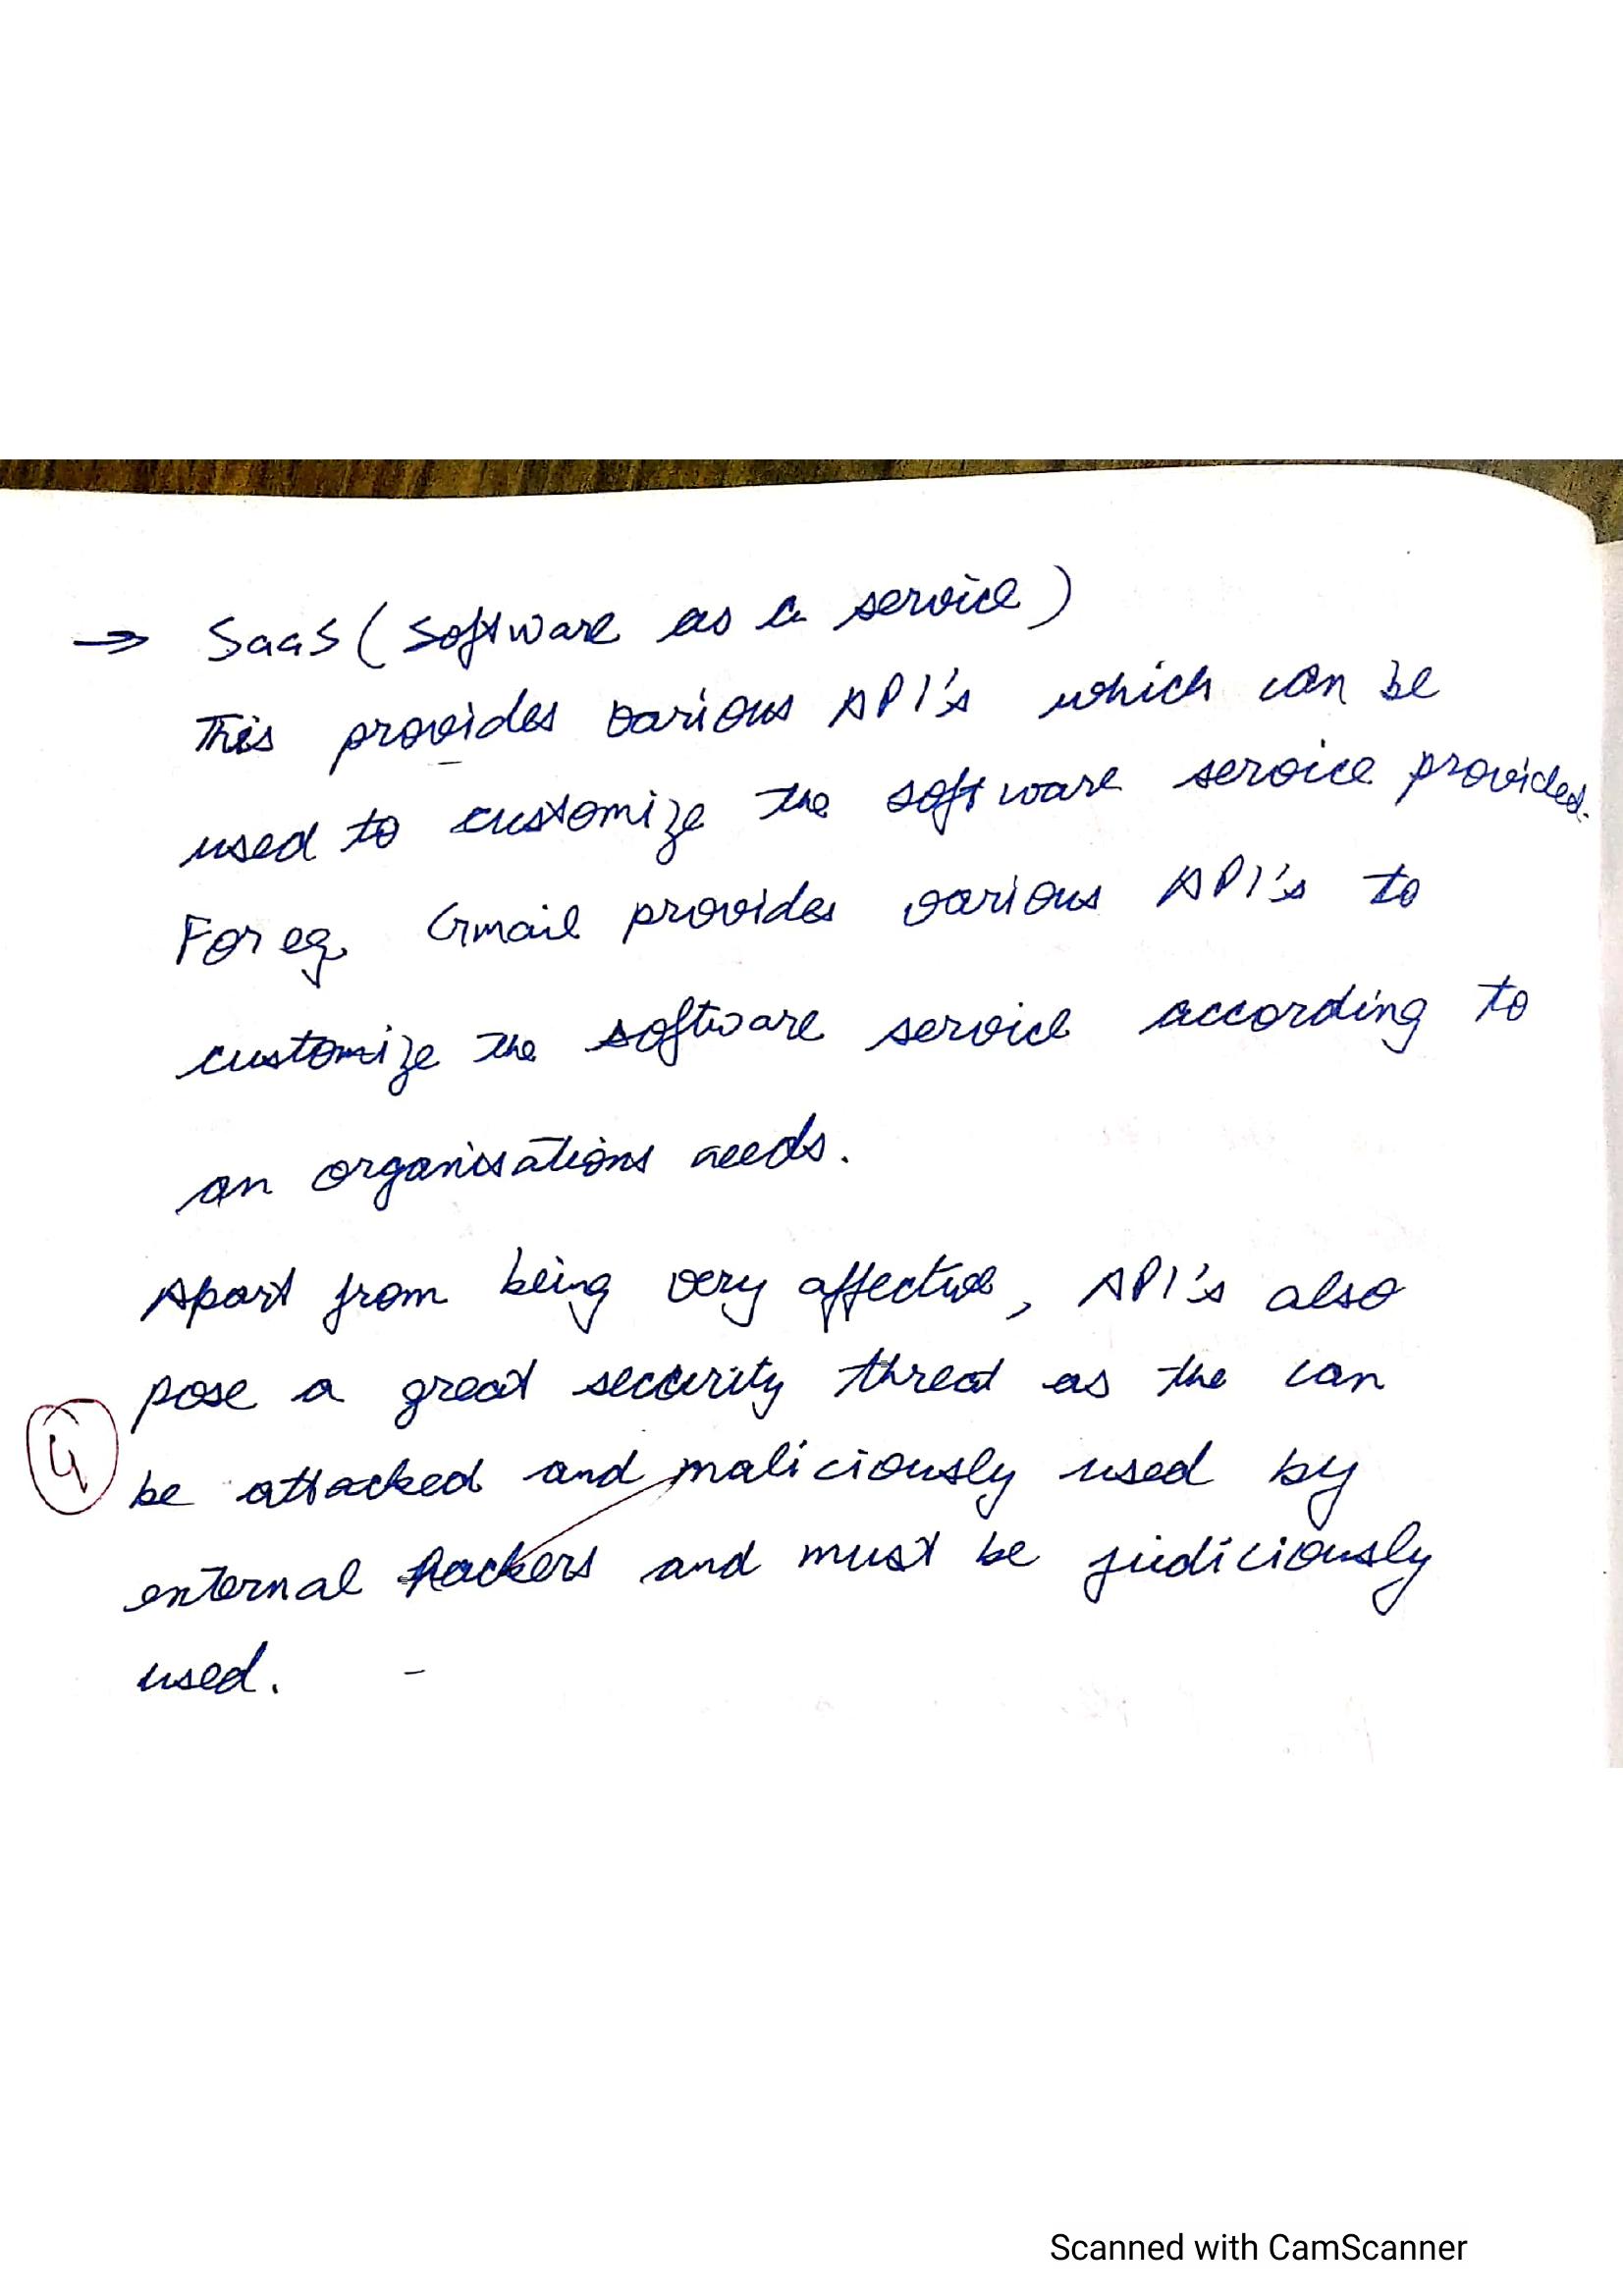 → SaaS (Software as a service)
This provides various API's which can be
used to customize the software service provided.
For eg. Gmail provides various API's to
customize the software service according to
an organisations needs.
Apart from being very affective, API's also
pose a great security threat as the can
4
be attacked and maliciously used by
external hackers and must be judiciously
used. -
Scanned with CamScanner